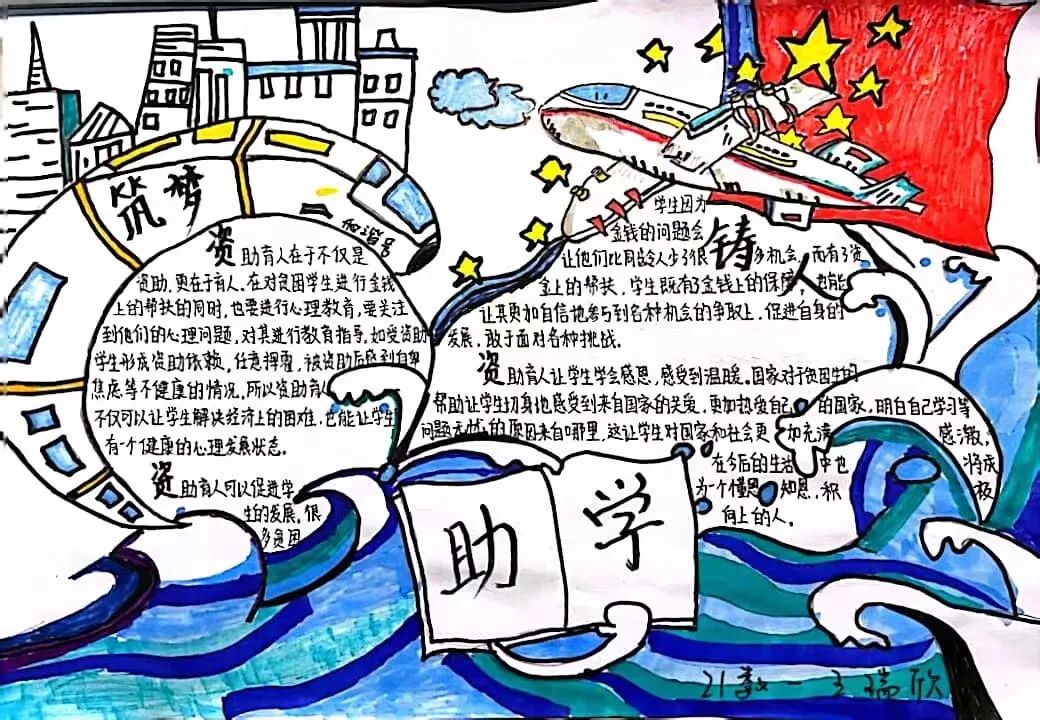 筑梦
和谐号
资助育人在于不仅是
资助,更在于育人。在对贫困学生进行金钱
上的帮扶的同时,也要进行心理教育,要关注
到他们的心理问题,对其进行教育指导,如受资助
学生形成资助依赖,任意挥霍,被资助后感到自卑
焦虑等不健康的情况,所以资助育人
不仅可以让学生解决经济上的困难,也能让学生
有一个健康的心理发展状态。
资助育人可以促进学
生的发展。很
多贫困
学生因为
金钱的问题会
让他们比同龄人少了很多机会,而有了资
金上的帮扶,学生既有了金钱上的保障,也能
让其更加自信地参与到各种机会的争取上,促进自身的
发展,敢于面对各种挑战。
铸人
资助育人让学生学会感恩,感受到温暖。国家对于贫困生的
帮助让学生切身地感受到来自国家的关爱,更加热爱自己的国家,明白自己学习等
问题无忧的原因来自哪里,这让学生对国家和社会更加充满感激,
在今后的生活中也将成
为一个懂恩知恩,积极
向上的人。
助学
21数一 王瑞欣